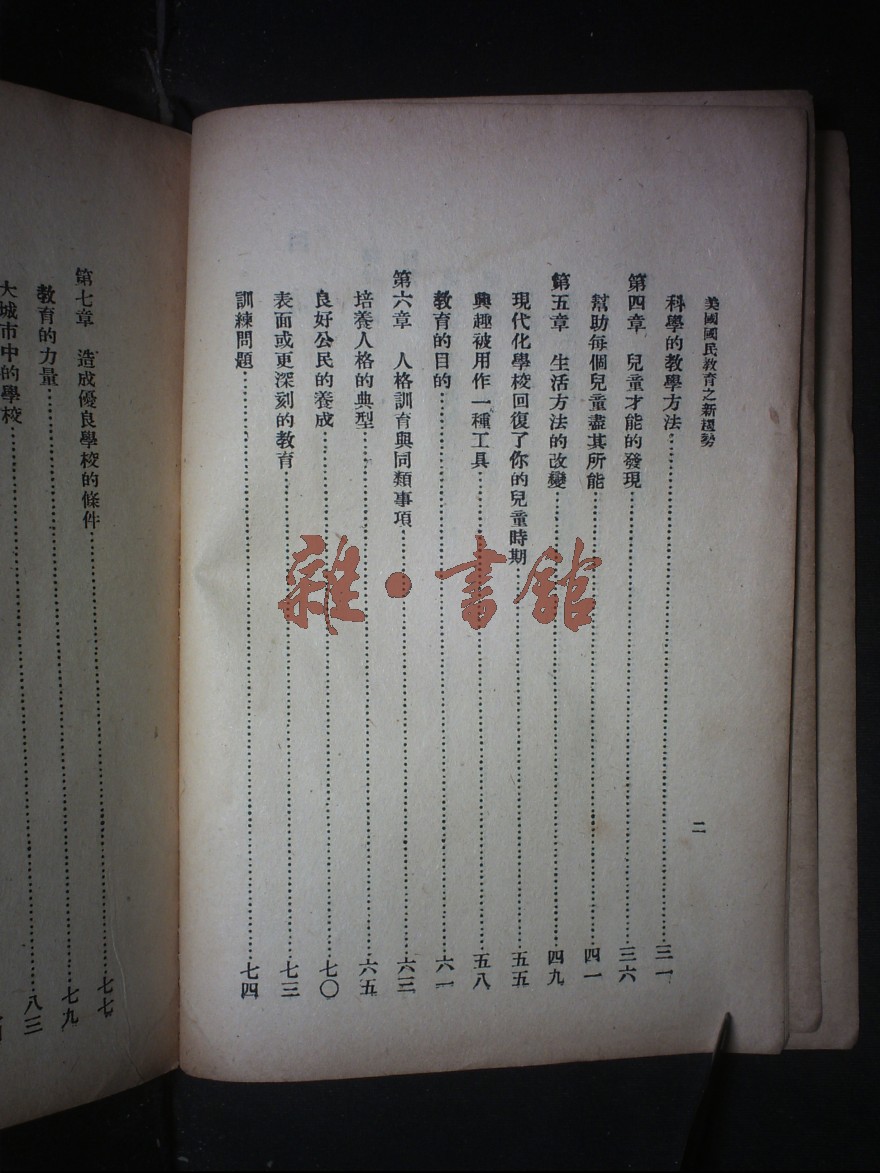 美國國民教育之新趨勢
二
科學的教學方法……三一
第四章 兒童才能的發現……三六
幫助每個兒童盡其所能……四一
第五章 生活方法的改變……四九
現代化學校回復了你的兒童時期……五五
興趣被用作一種工具……五八
教育的目的……六一
第六章 人格訓育與同類事項……六三
培養人格的典型……六五
良好公民的養成……七〇
表面或更深刻的教育……七三
訓練問題……七四
第七章 造成優良學校的條件……七七
教育的力量……七九
大城市中的學校……八三
雜·書館